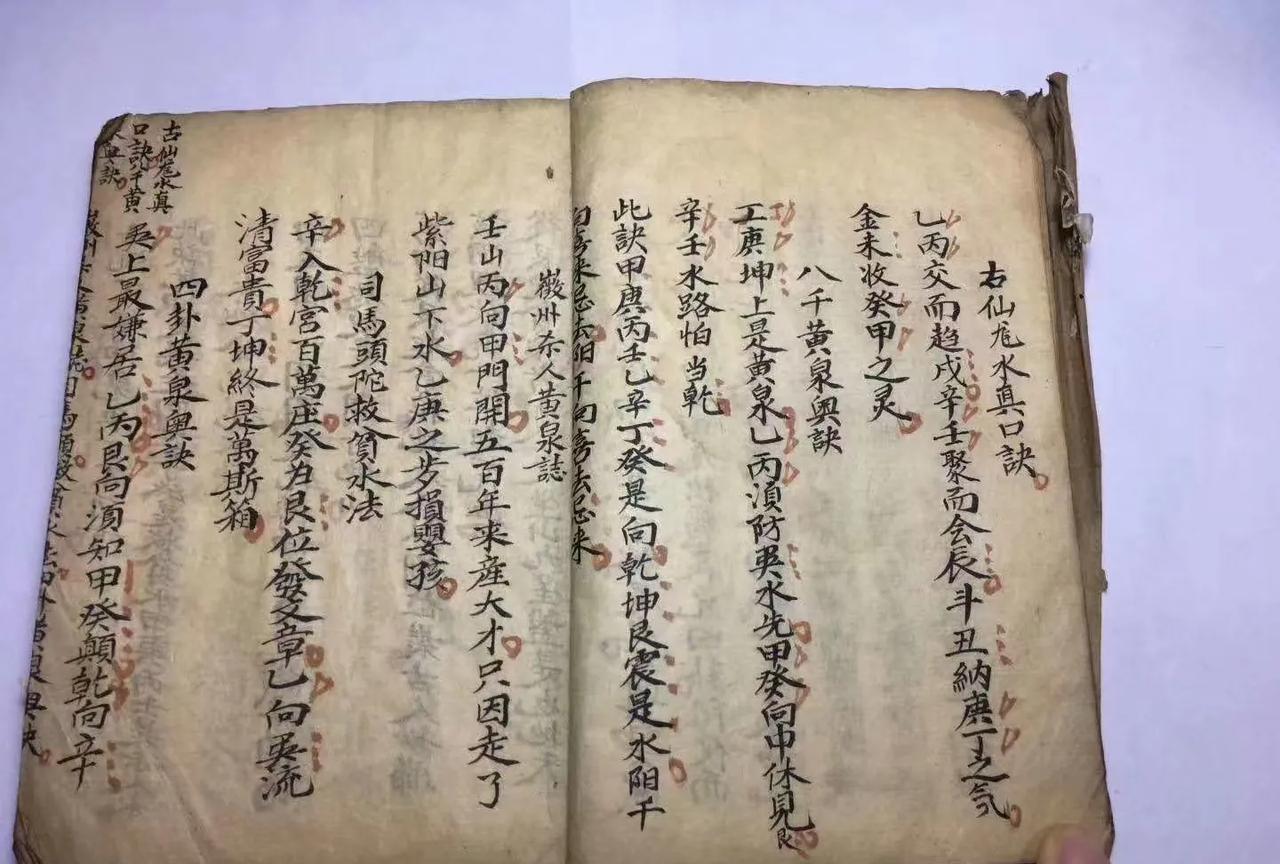 古仙尨水真口訣
乙丙交而趋戌辛壬聚而会辰斗丑納庚丁之気
金未收癸甲之灵
八千黄泉奥訣
丁庚坤上是黄泉乙丙湏防巽水先甲癸向中休見艮
辛壬水路怕当乾
此訣甲庚丙壬乙辛丁癸是向乾坤艮震是水阳千
向喜来忌去阳千向喜去忌来
徽州余人黄泉誌
壬山丙向甲門開五百年来産大才只因走了
紫阳山下水乙庚之步損嬰孩
司馬頭陀救貧水法
辛入乾宮百萬庄癸为艮位發文章乙向巽流
清富貴丁坤終是萬斯箱
四卦黄泉奥訣
巽上最嫌居乙丙艮向須知甲癸顛乾向辛
古仙尨水真
口訣八千黄
泉奥訣